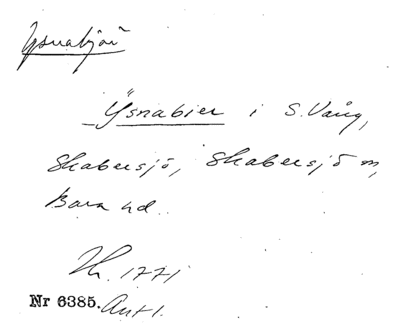 Ysnabjär
Ÿsnabier i S. Vång,
Skabersjö, Skabersjö sn,
Bara hd.
Hr. 1771
Nr 6385. Ant 1.